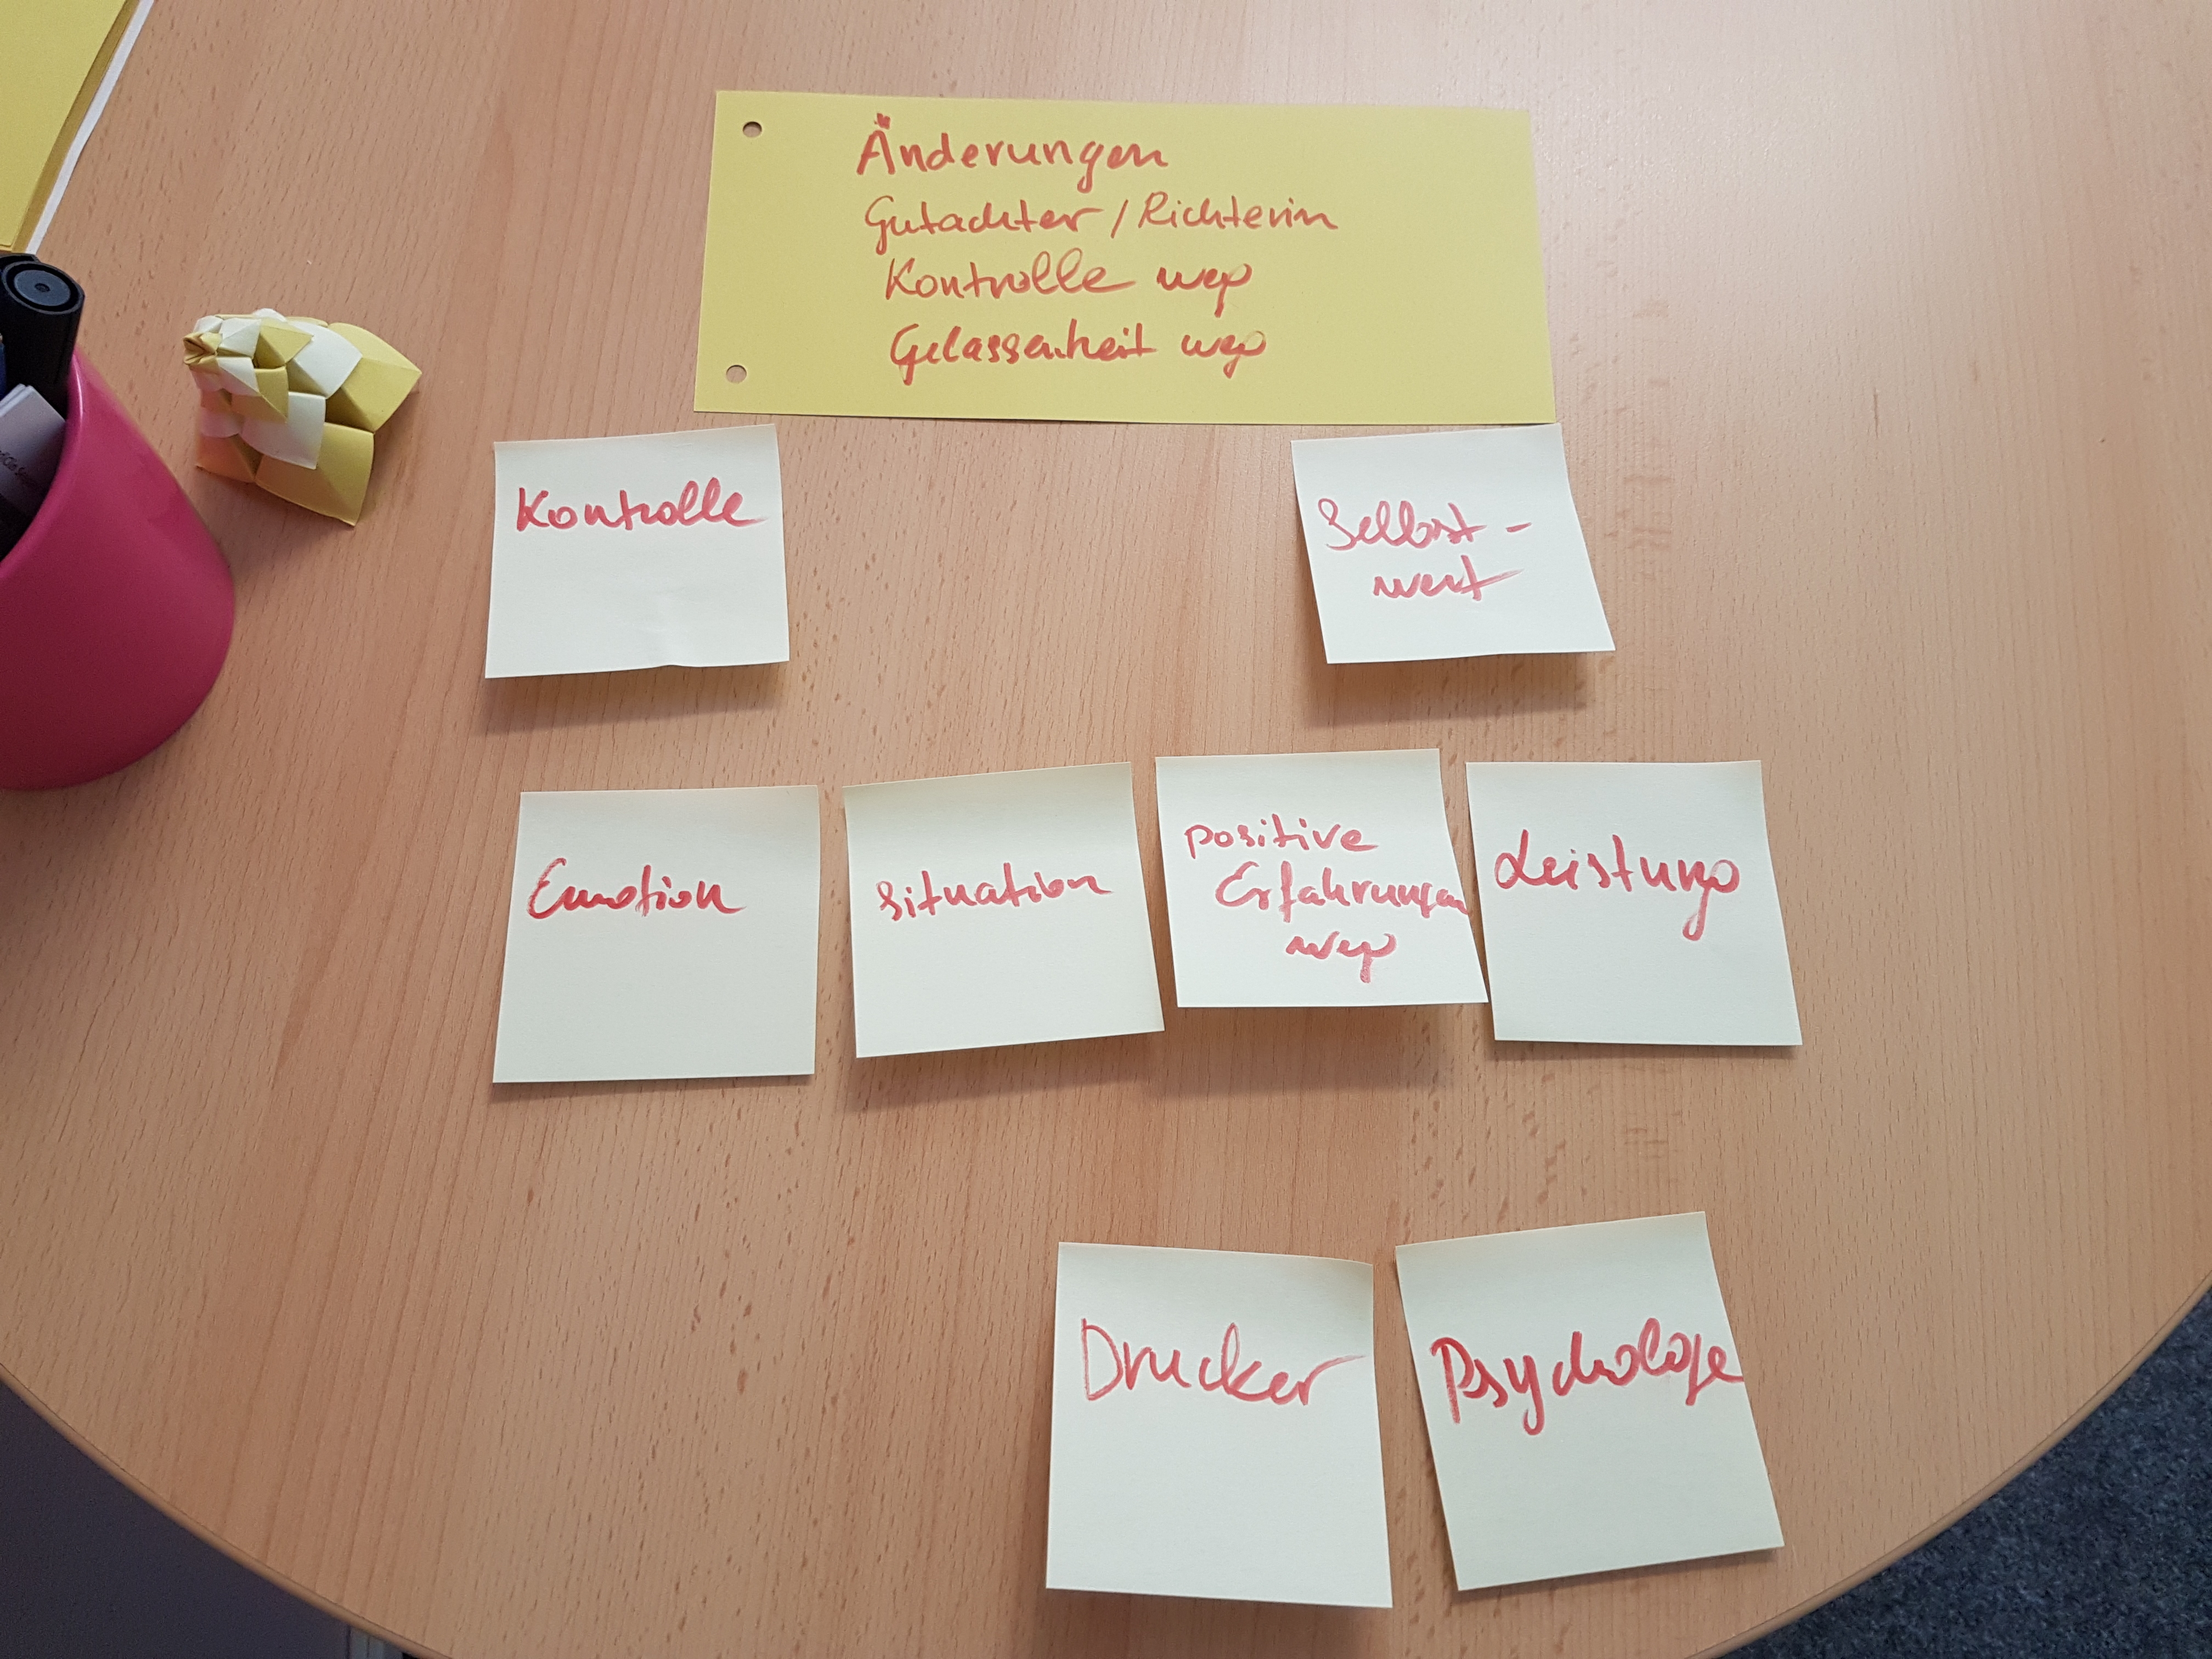 Änderungen
Gutachter / Richterin
Kontrolle weg
Gelassenheit weg
Kontrolle
Selbst-
wert
Emotion
Situation
positive
Erfahrungen
weg
Leistung
Drucker
Psychologe